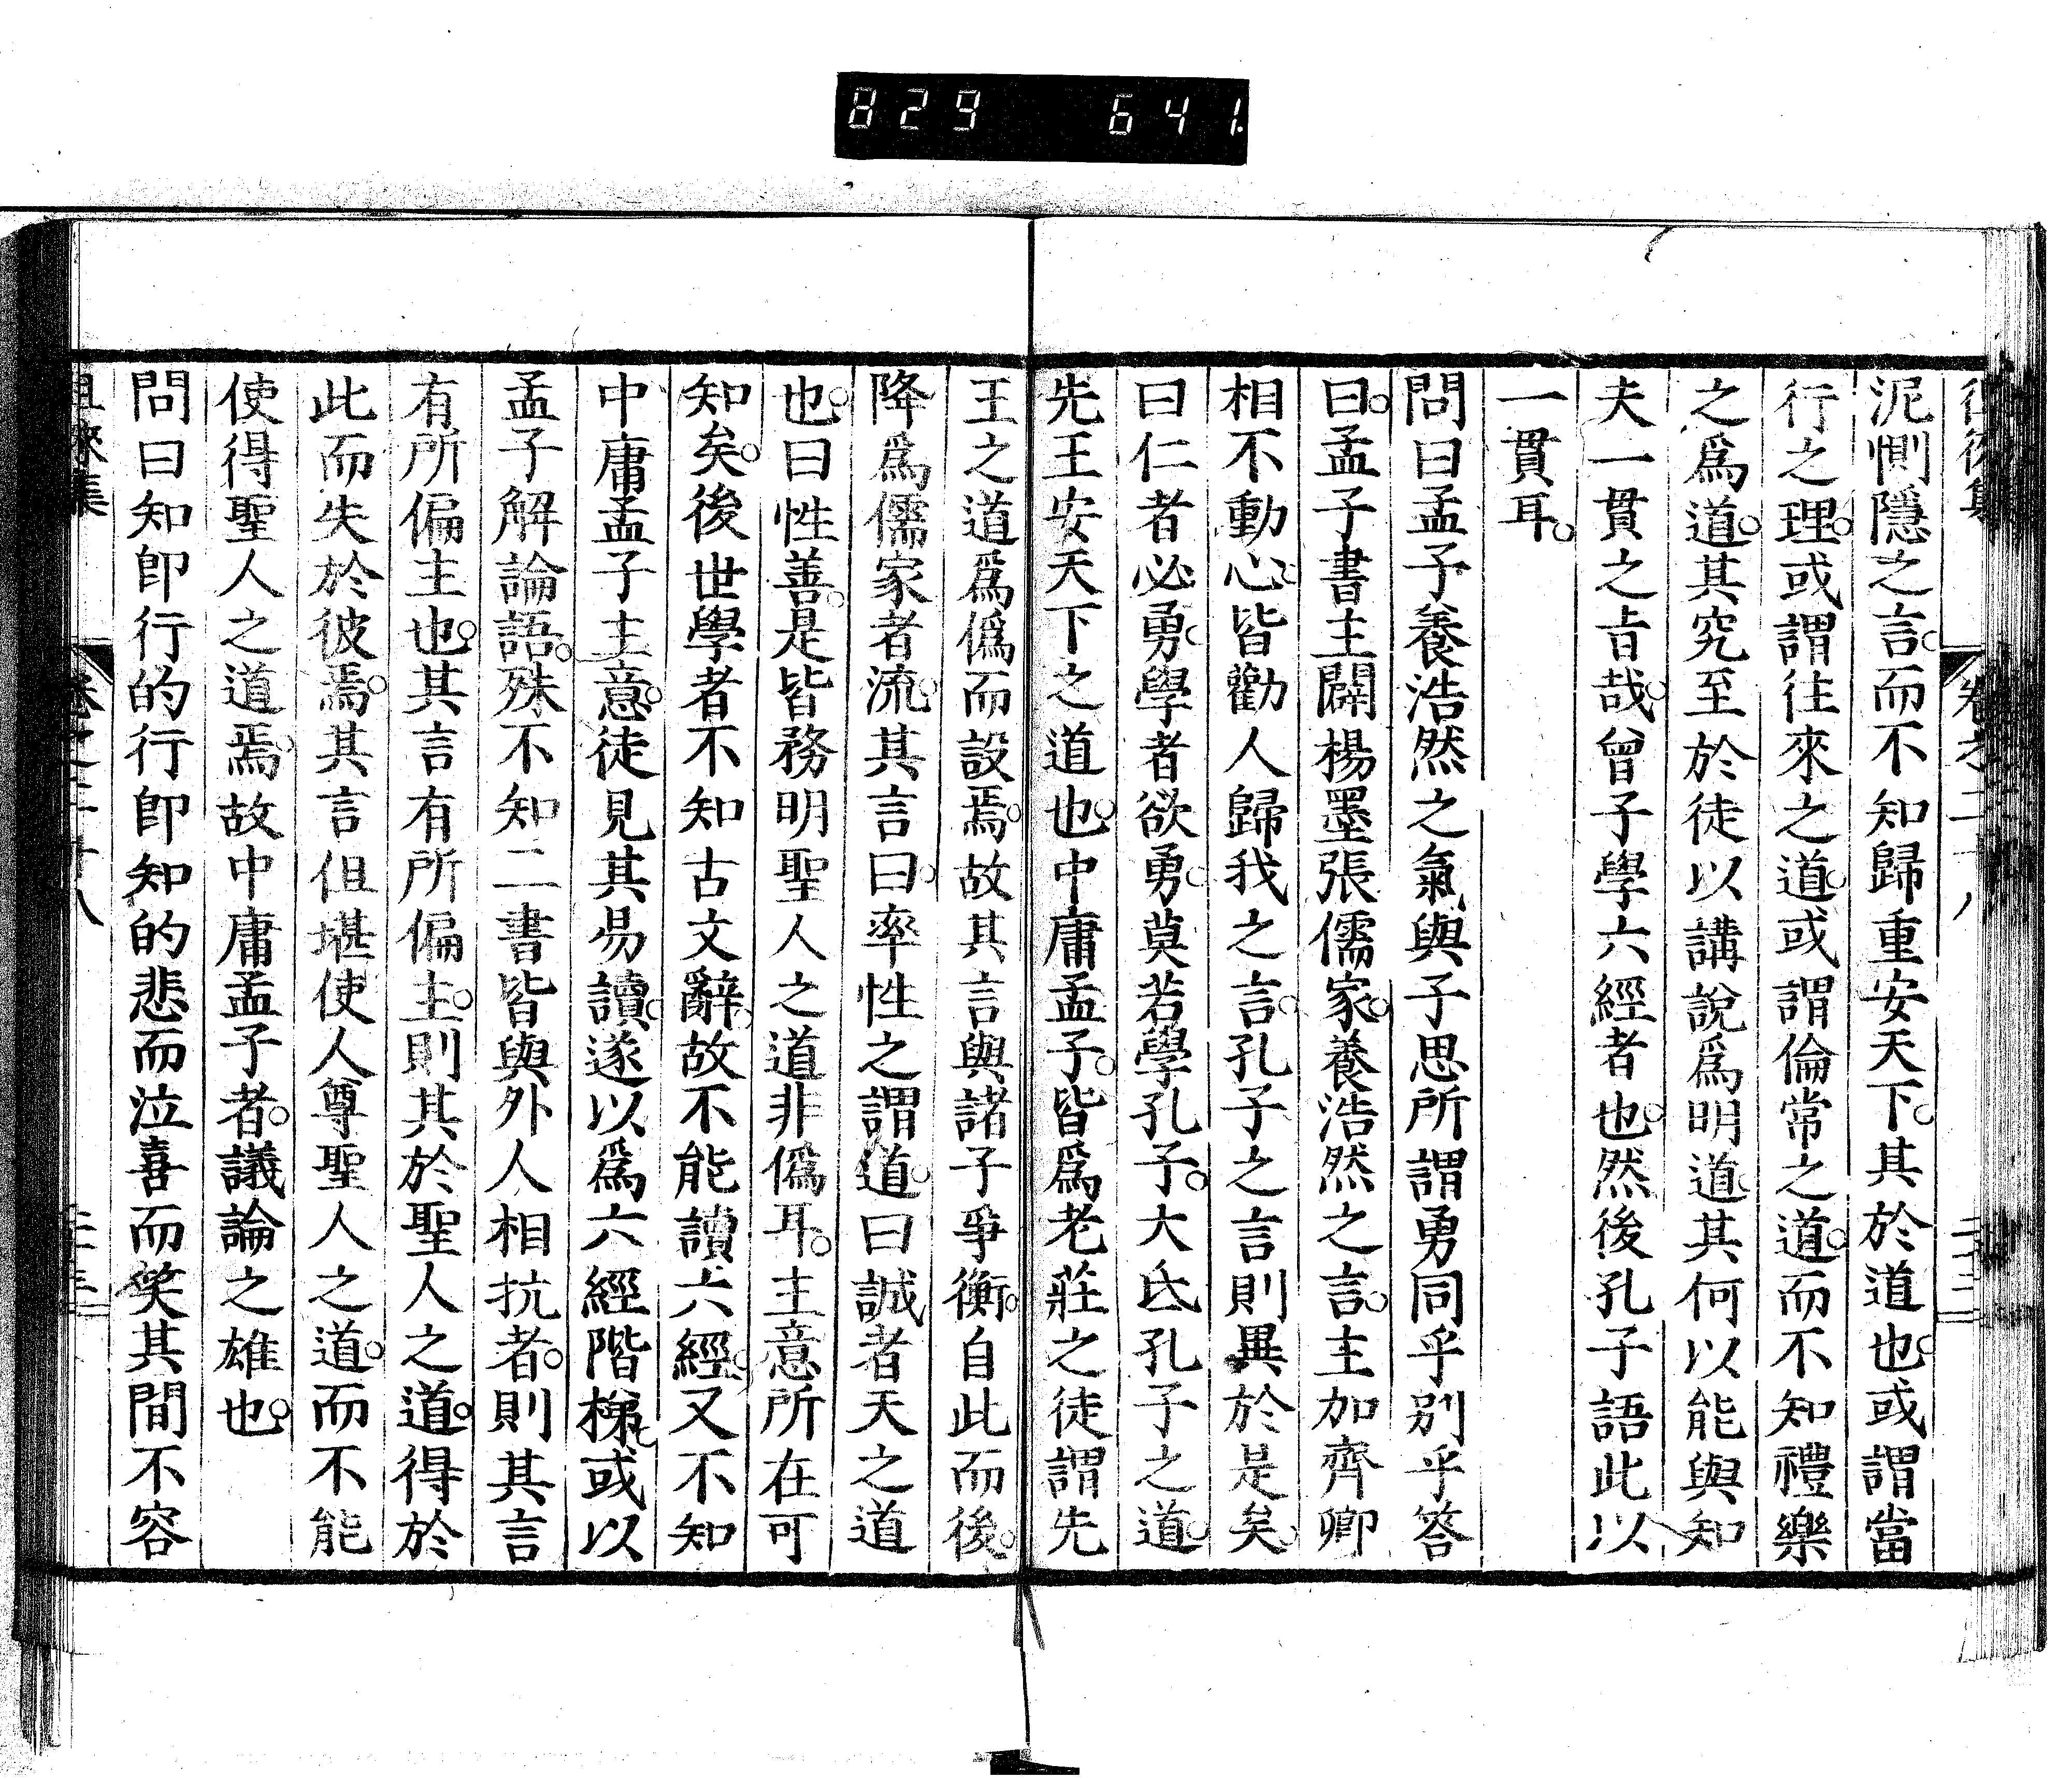 829 641.
泥惻隱之言。而不知歸重安天下。其於道也。或謂當
行之理。或謂往來之道。或謂倫常之道。而不知禮樂
之爲道。其究至於徒以講說爲明道。其何以能與知
夫一貫之旨哉。曾子學六經者也。然後孔子語此以
一貫耳。
問曰孟子養浩然之氣與子思所謂勇同乎别乎答
曰。孟子書主闢楊墨張儒家。養浩然之言。主加齊卿
相不動心。皆勸人歸我之言。孔子之言則異於是矣。
曰仁者必勇。學者欲勇。莫若學孔子。大氐孔子之道。
先王安天下之道也。中庸孟子。皆爲老莊之徒謂先
王之道爲僞而設焉。故其言與諸子爭衡。自此而後。
降爲儒家者流。其言曰。率性之謂道。曰誠者天之道
也。曰性善。是皆務明聖人之道非僞耳。主意所在可
知矣。後世學者不知古文辭。故不能讀六經。又不知
中庸孟子主意。徒見其易讀。遂以爲六經階梯。或以
孟子解論語。殊不知二書皆與外人相抗者。則其言
有所偏主也。其言有所偏主。則其於聖人之道。得於
此而失於彼焉。其言但堪使人尊聖人之道。而不能
使得聖人之道焉。故中庸孟子者。議論之雄也。
問曰知卽行的行卽知的悲而泣喜而笑其間不容